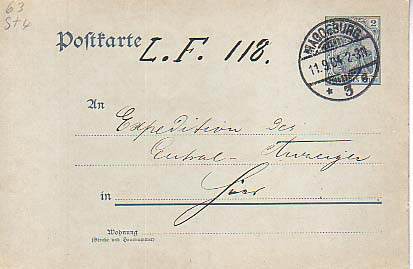 63
St 4
Postkarte L. F. 118.
2
MAGDEBURG
11.9.04. 2-3N.
* 3
An
Expedition des
Central-Anzeiger
in Hier
Wohnung
(Straße und Hausnummer)